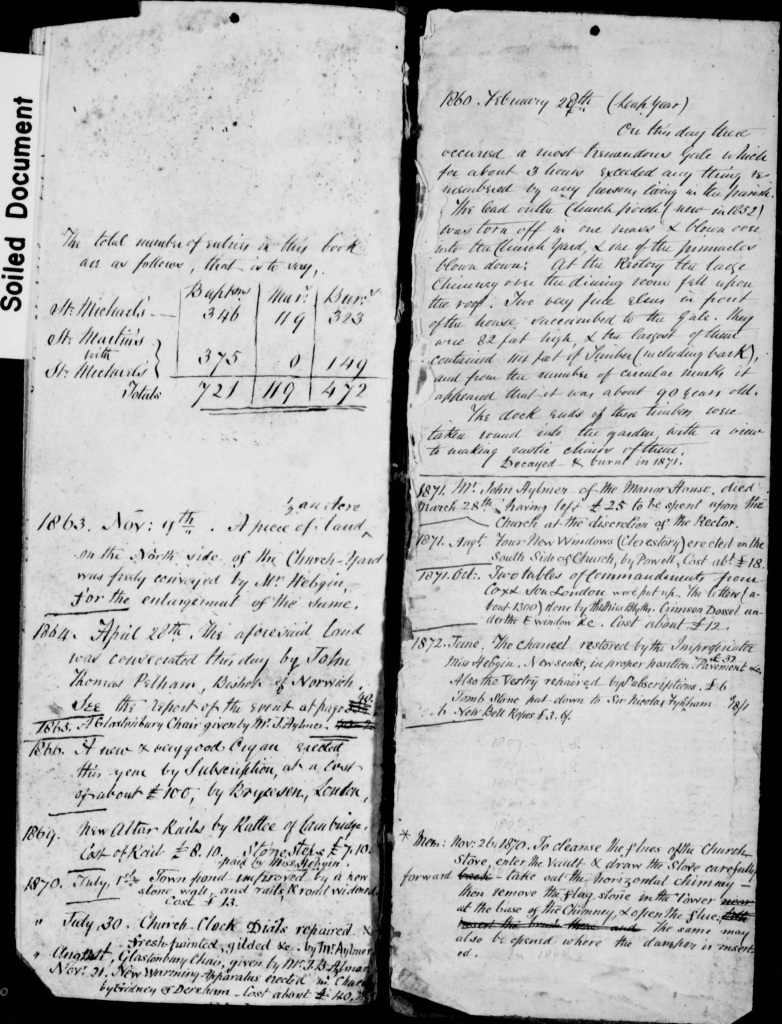 Soiled Document
The total number of entries in this book
are as follows, that is to say,
Baptms | Marr. | Burs
St. Michael's — 346 | 119 | 323
St. Martin's
with
St. Michael's } 375 | 0 | 149
Totals 721 | 119 | 472
½ an Acre
1863. Nov: 9th. A piece of land ^
on the North side of the Church-Yard
was freely conveyed by Mr Hebgin,
for the enlargement of the same.
1864. April 28th. The aforesaid land
was consecrated this day by John
Thomas Pelham, Bishop of Norwich.
See the report of the event at page 40.
1865. A Glastonbury Chair given by Mr. J. Aylmer.
1866. A new & very good Organ erected
this year by Subscription, at a cost
of about £100, by Bryceson, London.
1869. New Altar Rails by Rattee of Cambridge.
Cost of Rail £8.10. Stone Steps £7.10.
paid by Miss Hebgin.
1870. July 1st. Town pond improved by a new
stone wall, and rails, & road widened
Cost £13.
" July 30. Church-Clock Dials repaired &
fresh painted, gilded &c. by Mr Aylmer
" August, Glastonbury Chair, given by Mr. J. B. Aylmer
Nov. 21. New Warming-Apparatus erected in Church
by Gidney of Dereham. Cost about £40.
1860. February 28th (Leap Year)
On this day there
occurred a most tremendous Gale which
for about 3 hours exceeded any thing re-
membered by any persons living in the parish.
The lead on the Church porch (new in 1852)
was torn off in one mass & blown over
into the Church Yard, & one of the pinnacles
blown down; At the Rectory the large
Chimney over the dining room fell upon
the roof. Two very fine elms in front
of the house, succumbed to the Gale. They
were 82 feet high, & the largest of them
contained 114 feet of Timber (including bark),
and from the number of circular marks it
appeared that it was about 90 years old.
The dock ends of these timbers were
taken round into the garden, with a view
to making rustic chairs of them.
Decayed & burnt in 1871.
1871. Mr. John Aylmer of the Manor House, died
March 28th, having left £25 to be spent upon the
Church at the discretion of the Rector.
1871. Augt. Four New Windows (Clerestory) erected on the
South Side of Church, by Powell, Cost abt. £18.
1871. Oct: Two tables of Commandments from
Cox & Son London were put up. The letters (a-
bout 1300) done by the Miss Blyths. Crimson Dossel un-
der the E window &c. Cost about £12.
1872. June. The chancel restored by the Impropriator
Miss Hebgin. New seats, in proper position. Pavement &c. £32
Also the Vestry repaired by Subscriptions. £6
Tomb Stone put down to Sir Nicolas Fykham 18/1
6 New Bell Ropes £3. 6/.
* Mem: Nov: 26. 1870. To cleanse the flues of the Church
Stove, enter the Vault & draw the Stove carefully
forward back - take out the horizontal chimney -
then remove the flag stone in the Tower near
at the base of the Chimney, & open the flue;
The same may
also be opened where the damper is insert-
ed.